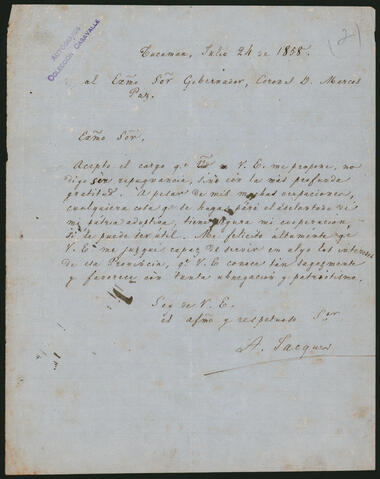 AUTÓGRAFOS
COLECCIÓN CASAVALLE
(2)
Tucuman, Julio 24 de 1858.
al Exmo Señr Gobernador, Coronel D. Marcos
Paz.
Exmo Señr.
Acepto el cargo qe V. E. me propone, no
digo sin repugnancia, sino con la mas profunda
gratitud. A pesar de mis muchas ocupaciones,
cualquiera cosa que se haga para el adelanto de
mi patria adoptiva, tiene segura mi cooperacion
si le puede ser util. Me felicito altamente qe
V. E. me juzgue capaz de servir en algo los intereses
de esta Provincia, qe V. E. conoce tan sagazmente
y favorece con tanta abnegacion y patriotismo.
Soy de V. E.
el afmo y respetuoso Sor
A. Jacques